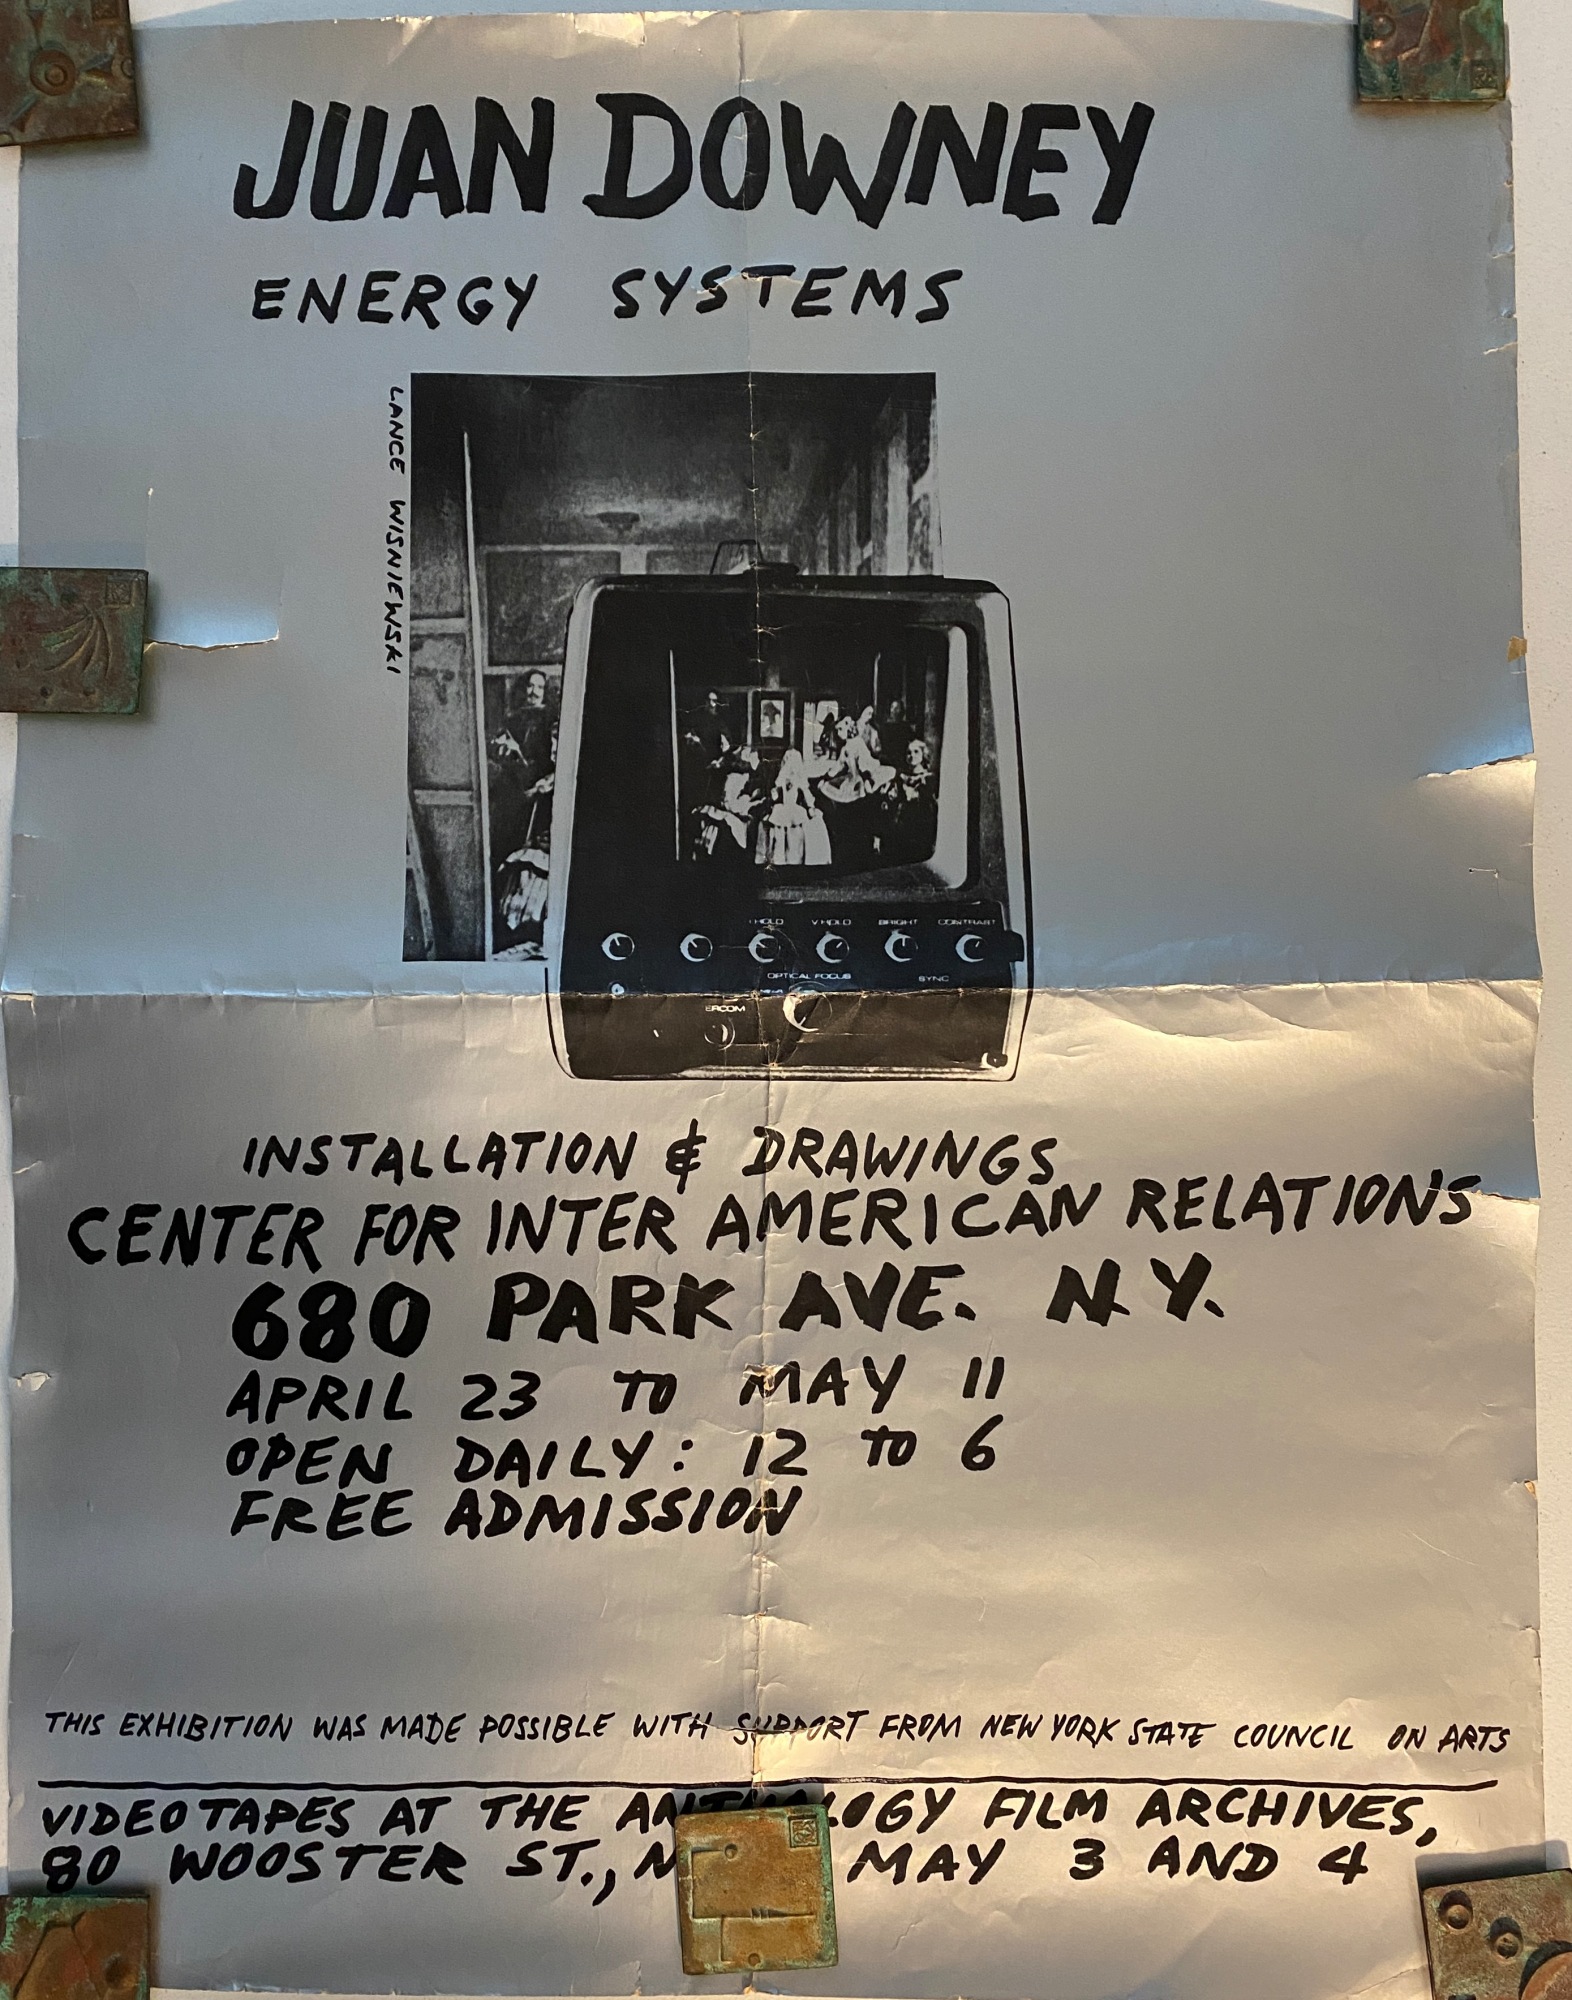 JUAN DOWNEY
ENERGY SYSTEMS
LANCE WISNIEWSKI
HOLD V HOLD BRIGHT CONTRAST
OPTICAL FOCUS SYNC
INSTALLATION & DRAWINGS
CENTER FOR INTER AMERICAN RELATIONS
680 PARK AVE. N.Y.
APRIL 23 TO MAY 11
OPEN DAILY: 12 TO 6
FREE ADMISSION
THIS EXHIBITION WAS MADE POSSIBLE WITH SUPPORT FROM NEW YORK STATE COUNCIL ON ARTS
VIDEOTAPES AT THE ANTHOLOGY FILM ARCHIVES,
80 WOOSTER ST., MAY 3 AND 4